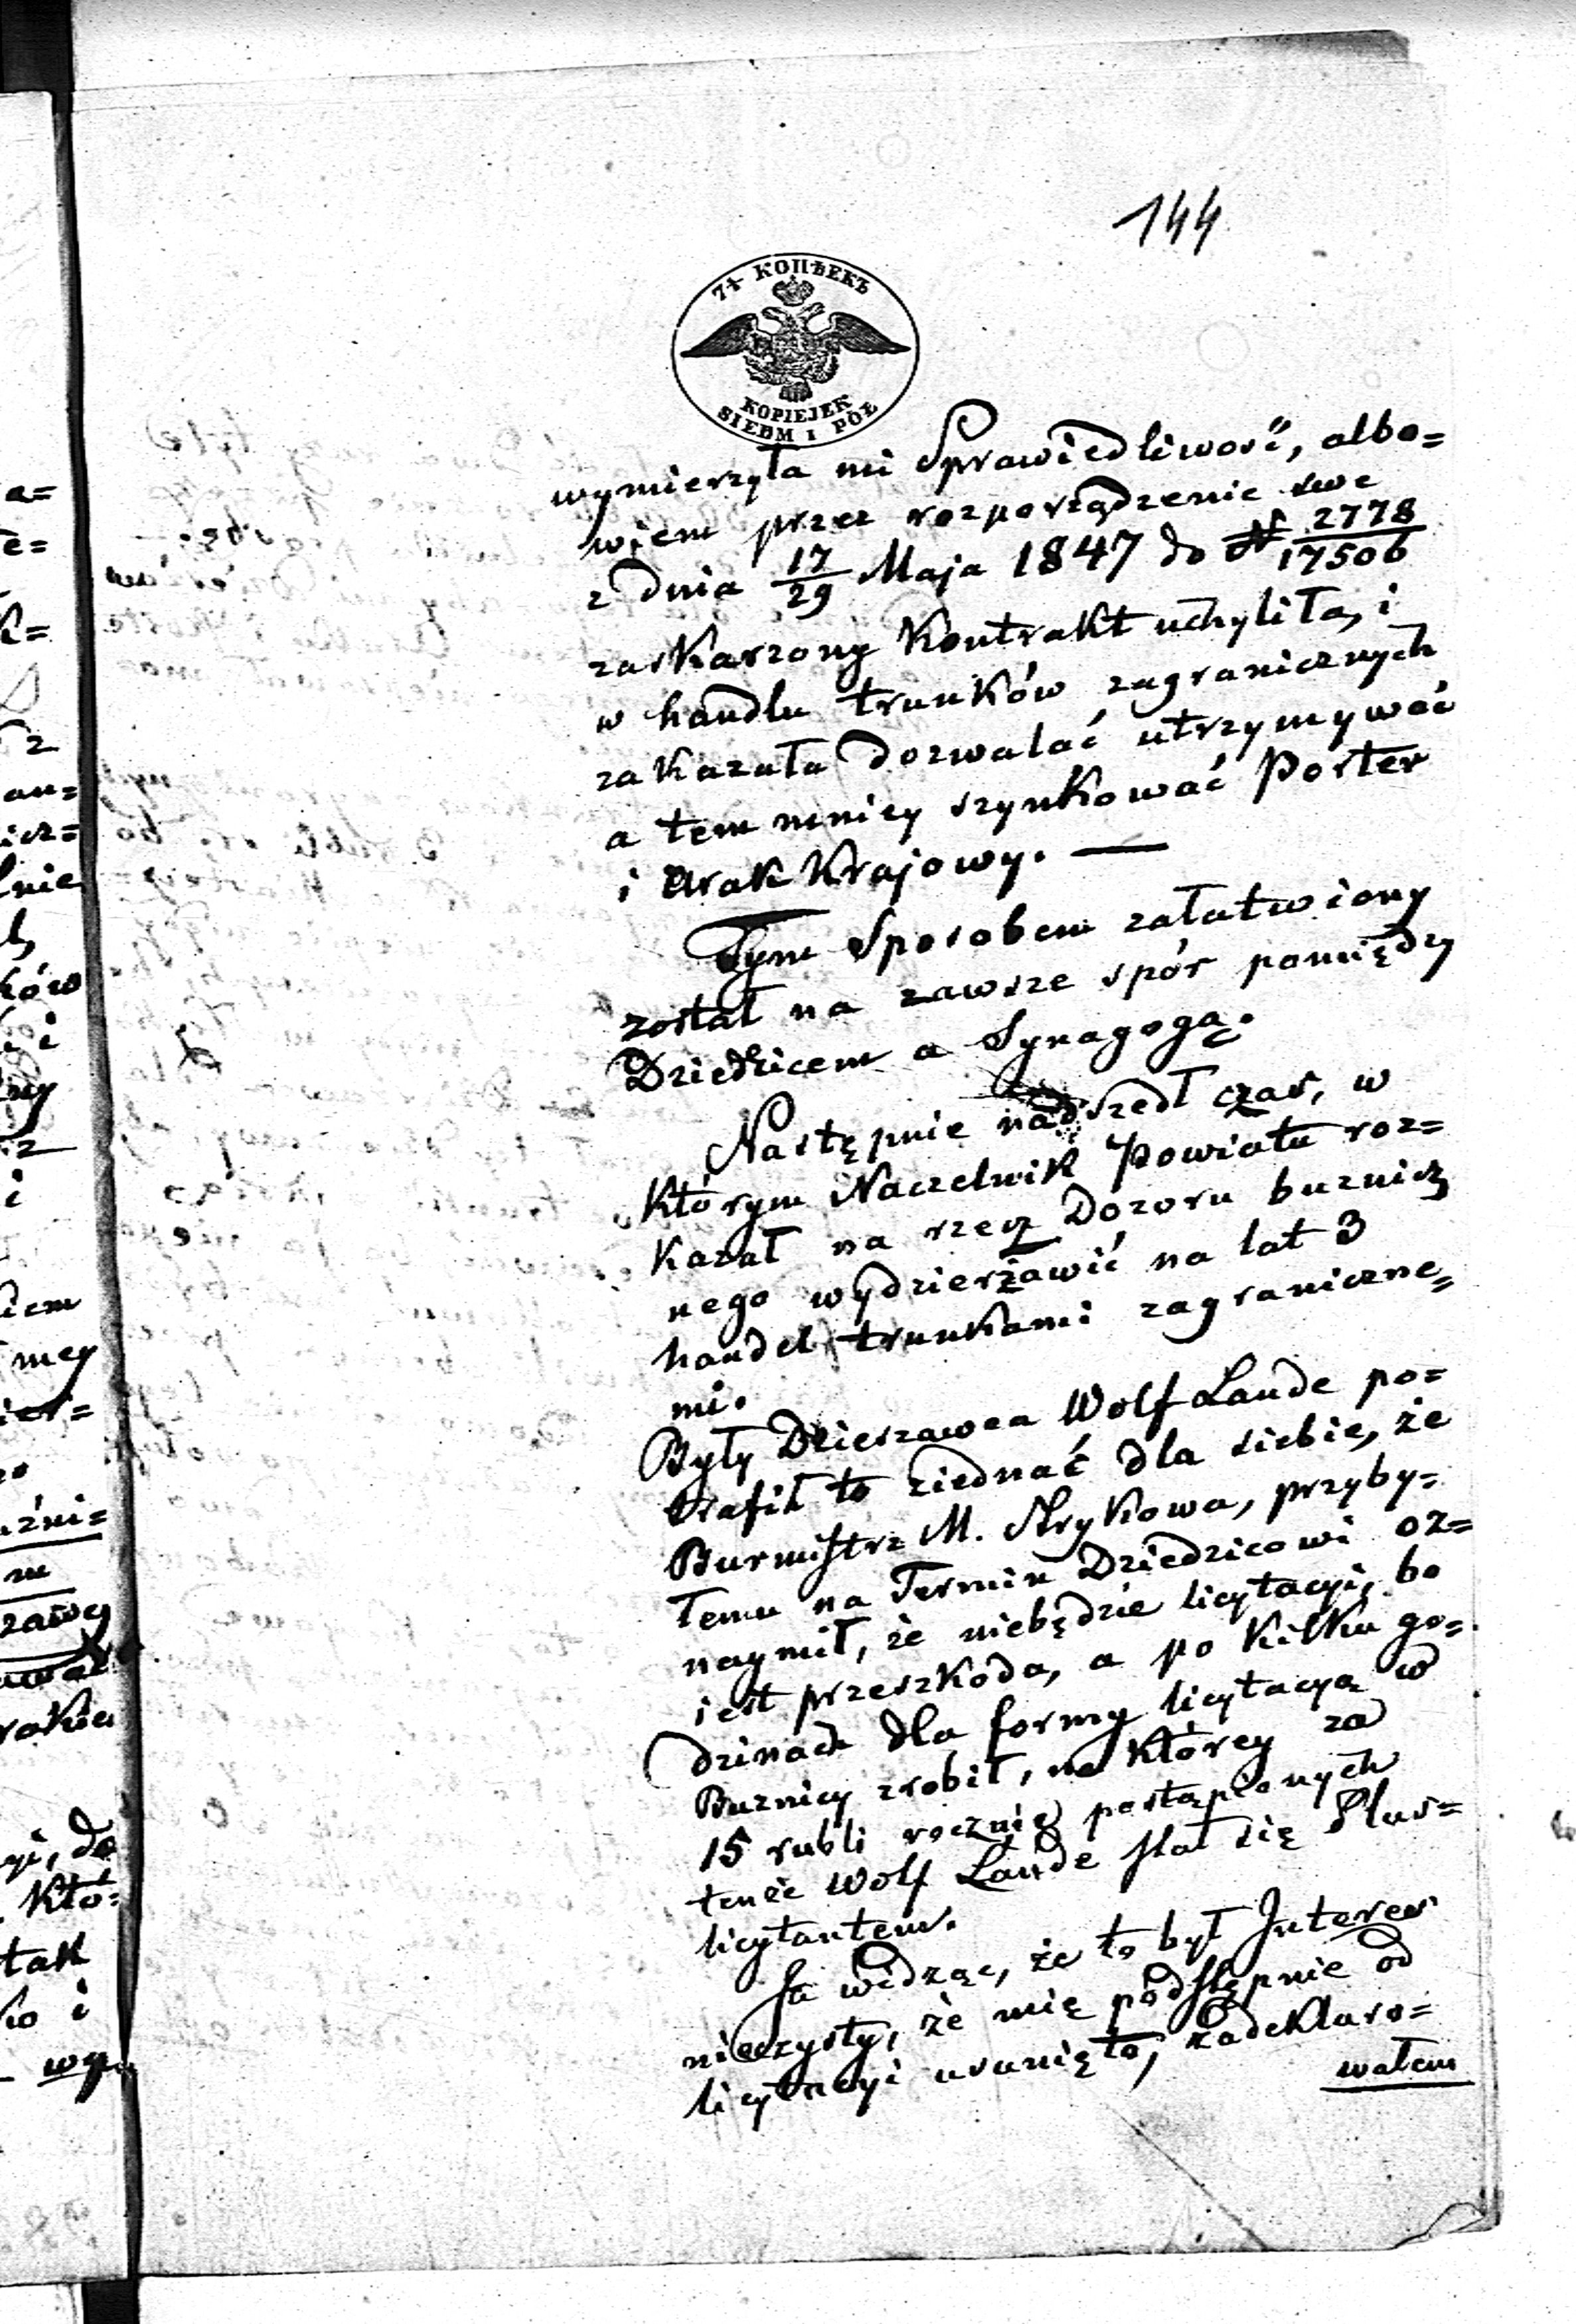 144
7½ КОПѢЕКЪ
KOPIEJEK
SIEDM I PÓŁ
wymierzyła mi Sprawiedliwość, albo=
wiem przez rozporządzenie swe
z dnia 17/29 Maja 1847 do N 2778/17506
zaskarzony Kontrakt uchyliła, i
w handlu trunków zagranicznych
zakazała dozwalać utrzymywać
a tem mniey szynkować Porter
i Arak Krajowy. —
Tym Sposobem załatwiony
został na zawsze spór pomiędzy
Dziedzicem a Synagogą.
Następnie nadszedł czas, w
którym Naczelnik Powiatu roz=
kazał na rzecz Dozoru buznicz
nego wydzierżawić na lat 3
handel trunkami zagraniczne=
mi.
Były Dzierzawca Wolf Lande po=
trafił to ziednać dla siebie, że
Burmistrz M. Strykowa, przyby=
łemu na Termin Dziedzicowi oz=
naymił, że niebędzie licytacyi, bo
iest przeszkoda, a po kilku go=
dzinach dla formy licytacyą w
Buznicy zrobił, na którey za
15 rubli rocznie postąpionych
tenże Wolf Lande stał się Plus=
licytantem.
Ja widząc, że to był Interes
nieczysty, że mię podstępnie od
licytacyi usunięto, zadeklaro=
wałem